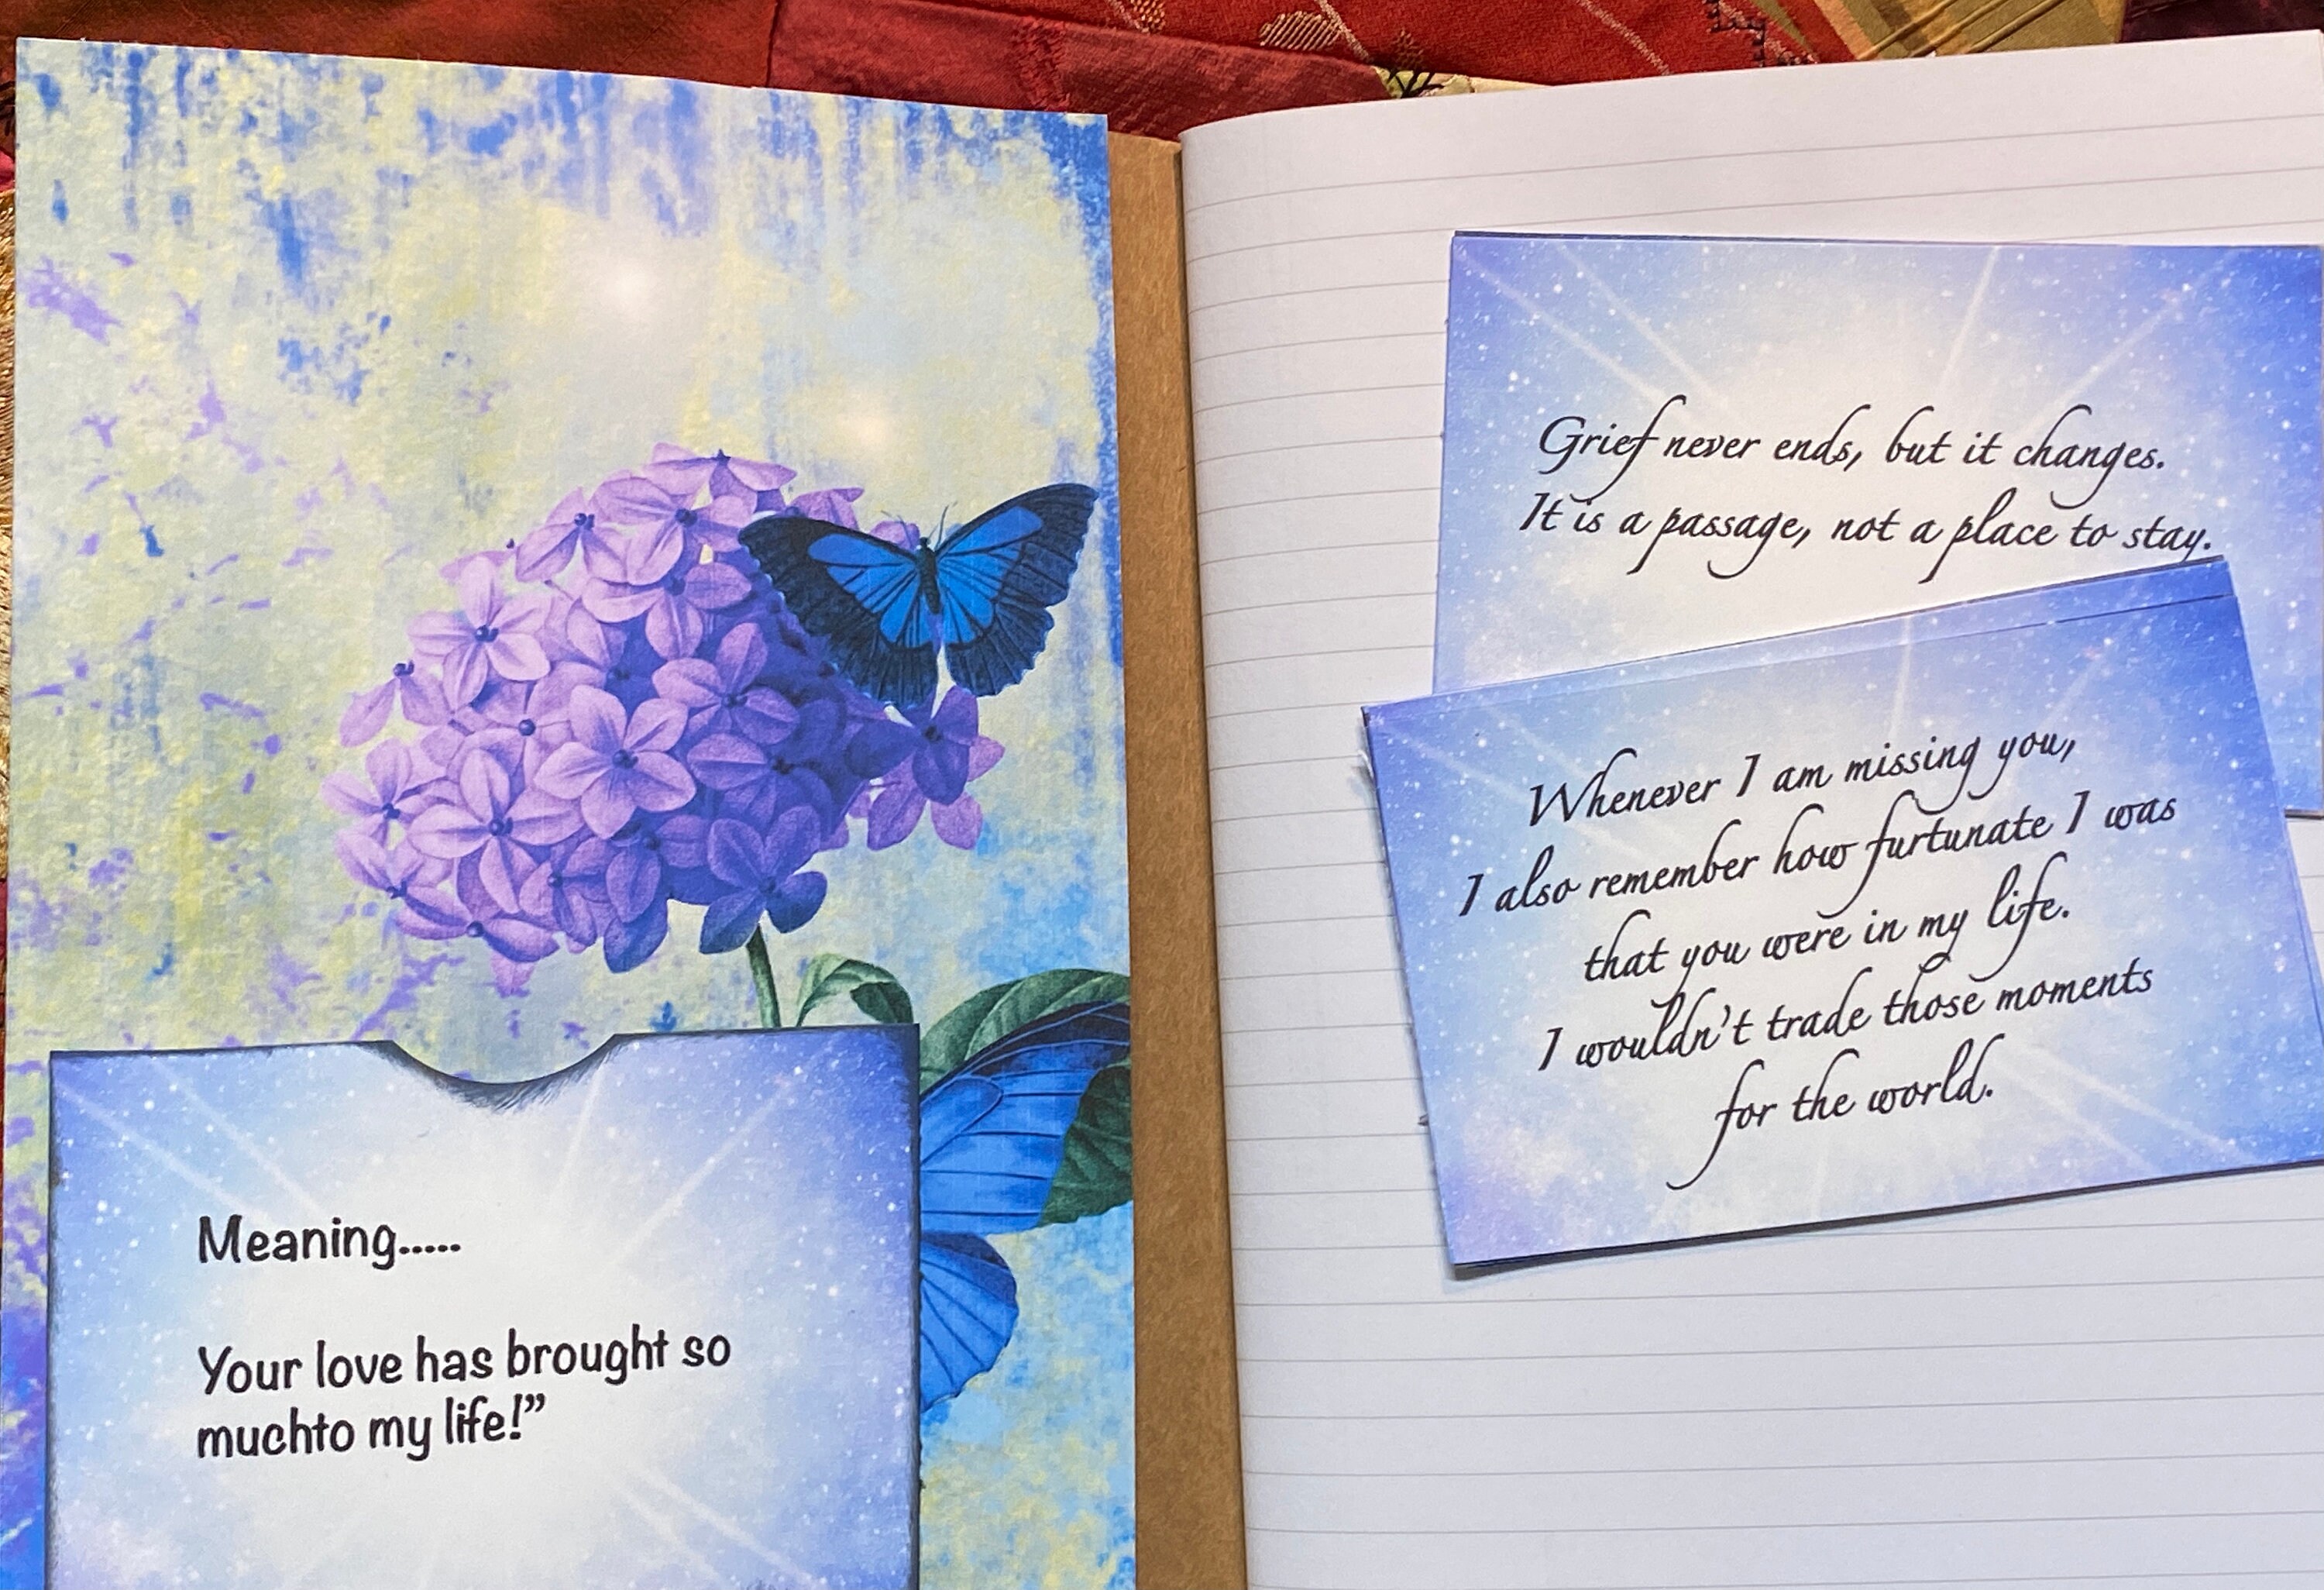 Meaning.....
Your love has brought so
muchto my life!”
Grief never ends, but it changes.
It is a passage, not a place to stay.
Whenever I am missing you,
I also remember how furtunate I was
that you were in my life.
I wouldn't trade those moments
for the world.